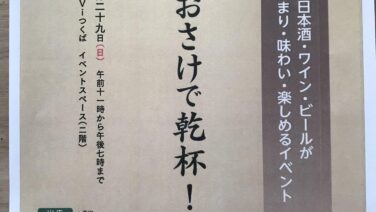 日本酒・ワイン・ビールが
まり・味わい・楽しめるイベント
おさけで乾杯！
二十九日（日） 午前十一時から午後七時まで
Viつくば イベントスペース（二階）